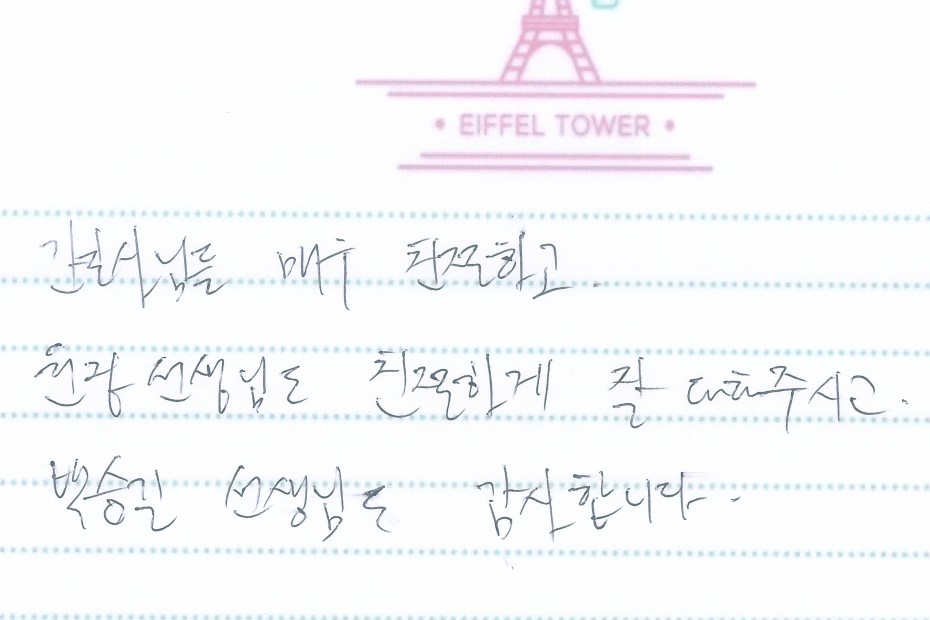 • EIFFEL TOWER •
간호사님들 매우 친절하고.
원장 선생님도 친절하게 잘 대해주시고.
백승길 선생님도 감사합니다.